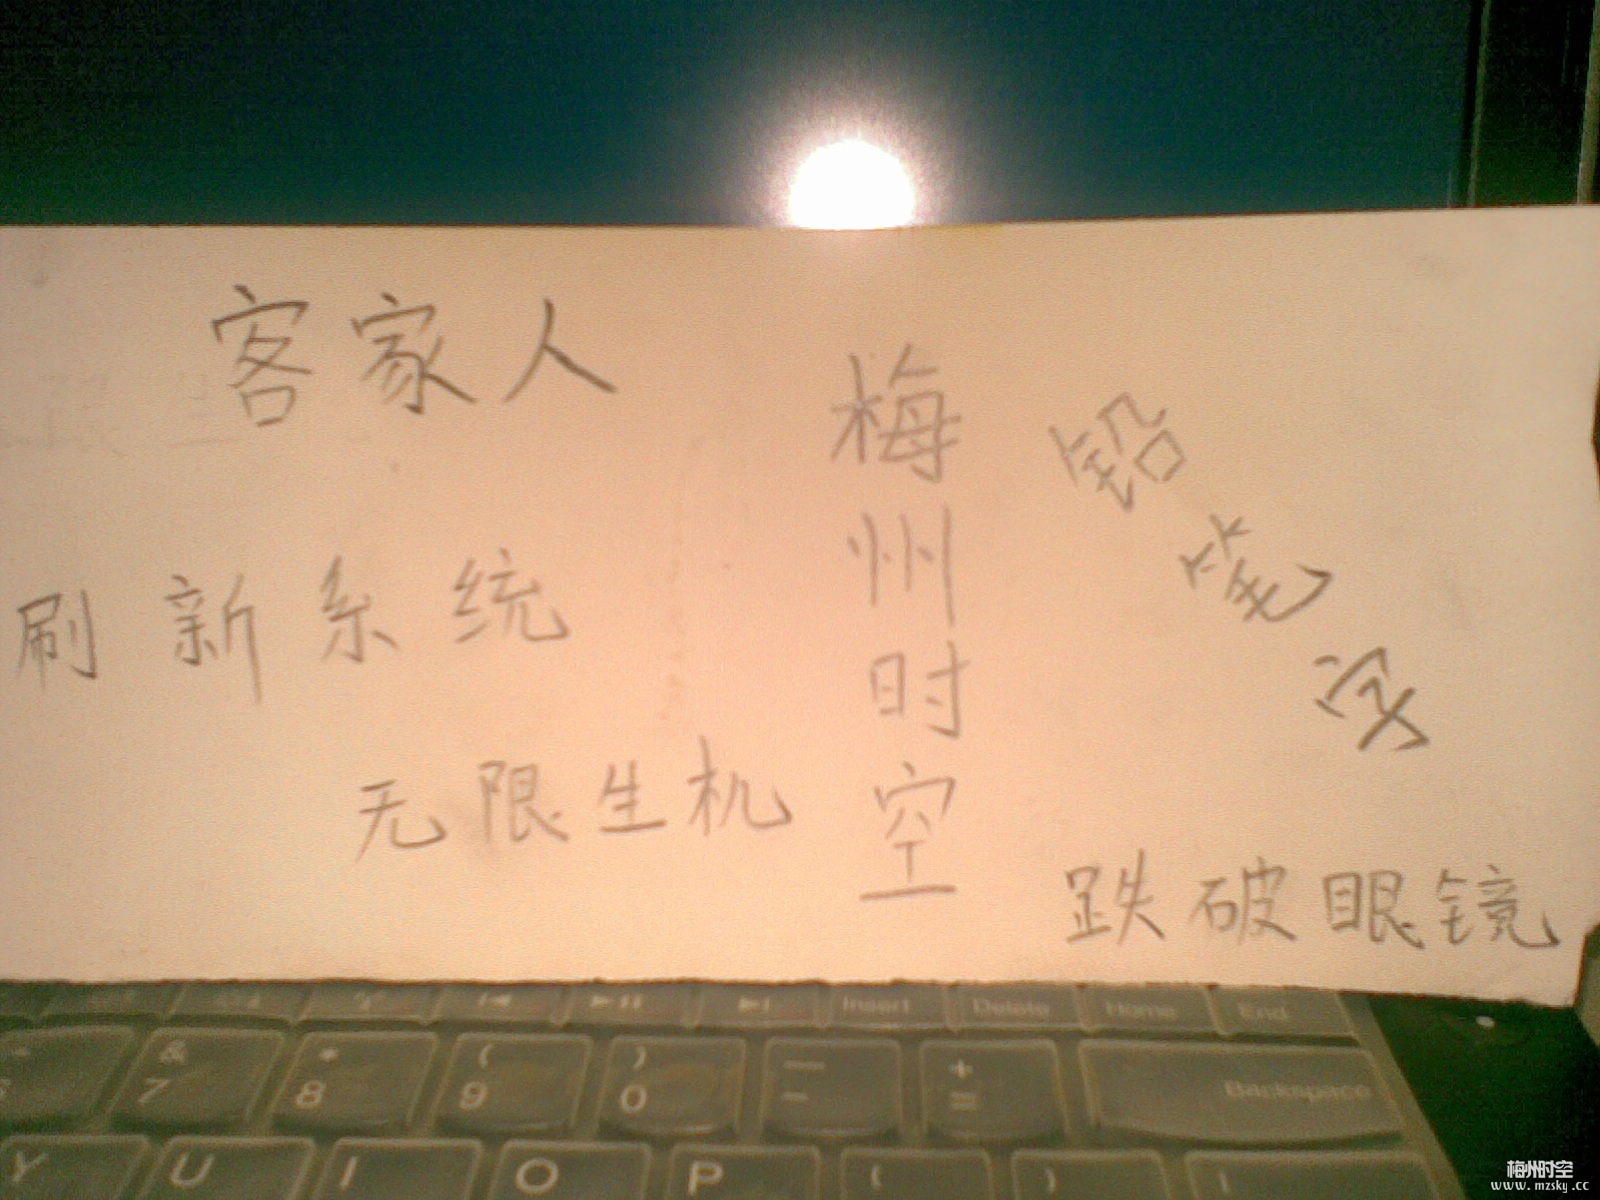 客家人
梅州时空
铅笔字
刷新系统
无限生机
跌破眼镜
Insert Delete Home End
& * ( ) — +
7 8 9 0 - =
Backspace
Y U I O P
梅州时空
www.mzsky.cc